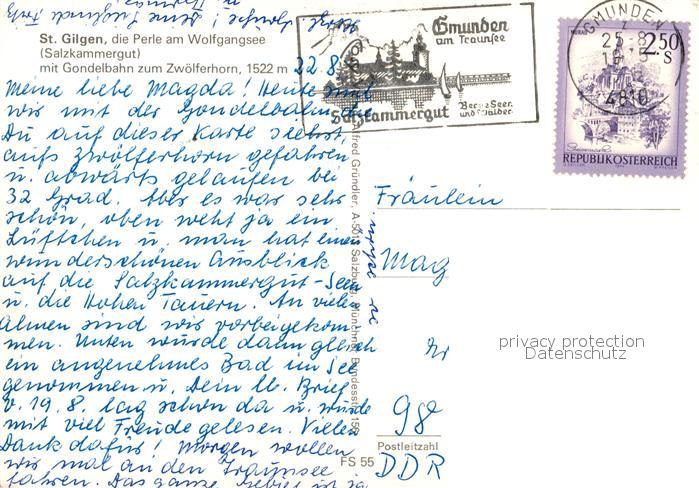 St. Gilgen, die Perle am Wolfgangsee
(Salzkammergut)
mit Gondelbahn zum Zwölferhorn, 1522 m
22.8.
Meine liebe Magda! Heute sind
wir mit der Gondelbahn, die
Du auf dieser Karte siehst,
aufs Zwölferhorn gefahren
u. abwärts gelaufen bei
32 Grad. Aber es war sehr
schön, oben weht ja ein
Lüftchen u. man hat einen
wunderschönen Ausblick
auf die Salzkammergut-Seen
u. die Hohen Tauern. An vielen
Almen sind wir vorbeigekom-
men. Unten wurde dann gleich
ein angenehmes Bad im See
genommen u. Dein lb. Brief
v. 19.8. lag schon da u. wurde
mit viel Freude gelesen. Vielen
Dank dafür! Morgen wollen
wir mal an den Traunsee
fahren. Das ganze Gebiet ist ja
Gmunden
am Traunsee
Salzkammergut
Berge Seen
und Wälder
GMUNDEN
25.-8.
4810
2.50
S
MURAU
REPUBLIK ÖSTERREICH
Alfred Gründler, A-501 Salzburg, Münchner Bundesstr. 15
FS 55
Fräulein
Mag
privacy protection
Datenschutz
98
Postleitzahl
DDR